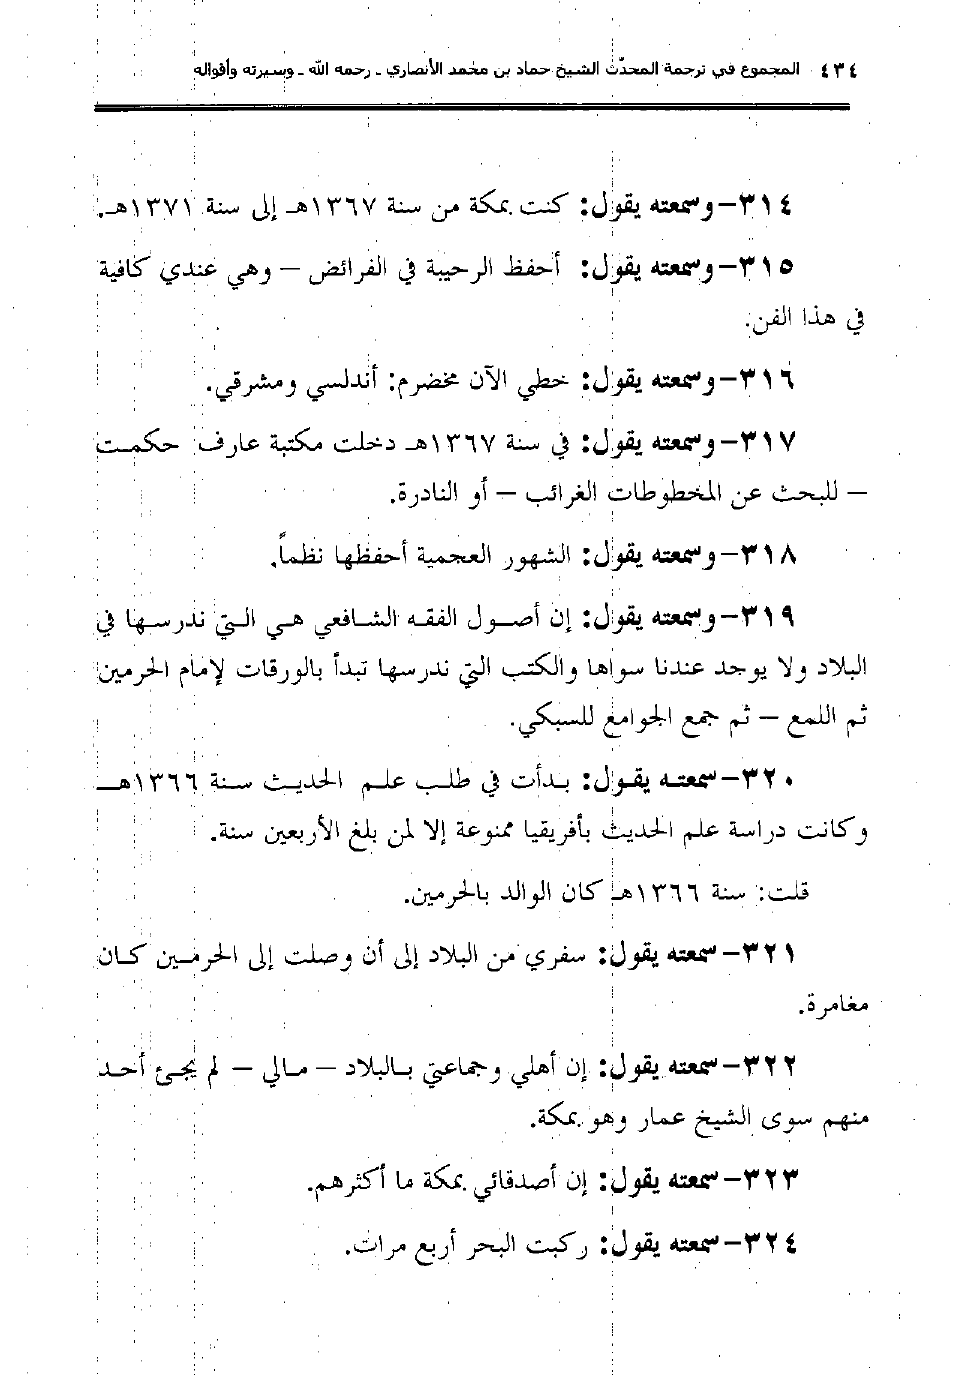 ٤٣٤ المجموع في ترجمة المحدّث الشيخ حماد بن محمد الأنصاري ـ رحمه الله ـ وسيرته وأقواله
٣١٤– وسمعته يقول: كنت بمكة من سنة ١٣٦٧هـ إلى سنة ١٣٧١هـ.
٣١٥– وسمعته يقول: أحفظ الرحيبة في الفرائض – وهي عندي كافية
في هذا الفن.
٣١٦– وسمعته يقول: خطي الآن مخضرم: أندلسي ومشرقي.
٣١٧– وسمعته يقول: في سنة ١٣٦٧هـ دخلت مكتبة عارف حكمت
– للبحث عن المخطوطات الغرائب – أو النادرة.
٣١٨– وسمعته يقول: الشهور العجمية أحفظها نظماً.
٣١٩– وسمعته يقول: إن أصول الفقه الشافعي هي التي ندرسها في
البلاد ولا يوجد عندنا سواها والكتب التي ندرسها تبدأ بالورقات لإمام الحرمين
ثم اللمع – ثم جمع الجوامع للسبكي.
٣٢٠– سمعته يقول: بدأت في طلب علم الحديث سنة ١٣٦٦هـ
وكانت دراسة علم الحديث بأفريقيا ممنوعة إلا لمن بلغ الأربعين سنة.
قلت: سنة ١٣٦٦هـ كان الوالد بالحرمين.
٣٢١– سمعته يقول: سفري من البلاد إلى أن وصلت إلى الحرمين كان
مغامرة.
٣٢٢– سمعته يقول: إن أهلي وجماعتي بالبلاد – مالي – لم يجئ أحد
منهم سوى الشيخ عمار وهو بمكة.
٣٢٣– سمعته يقول: إن أصدقائي بمكة ما أكثرهم.
٣٢٤– سمعته يقول: ركبت البحر أربع مرات.